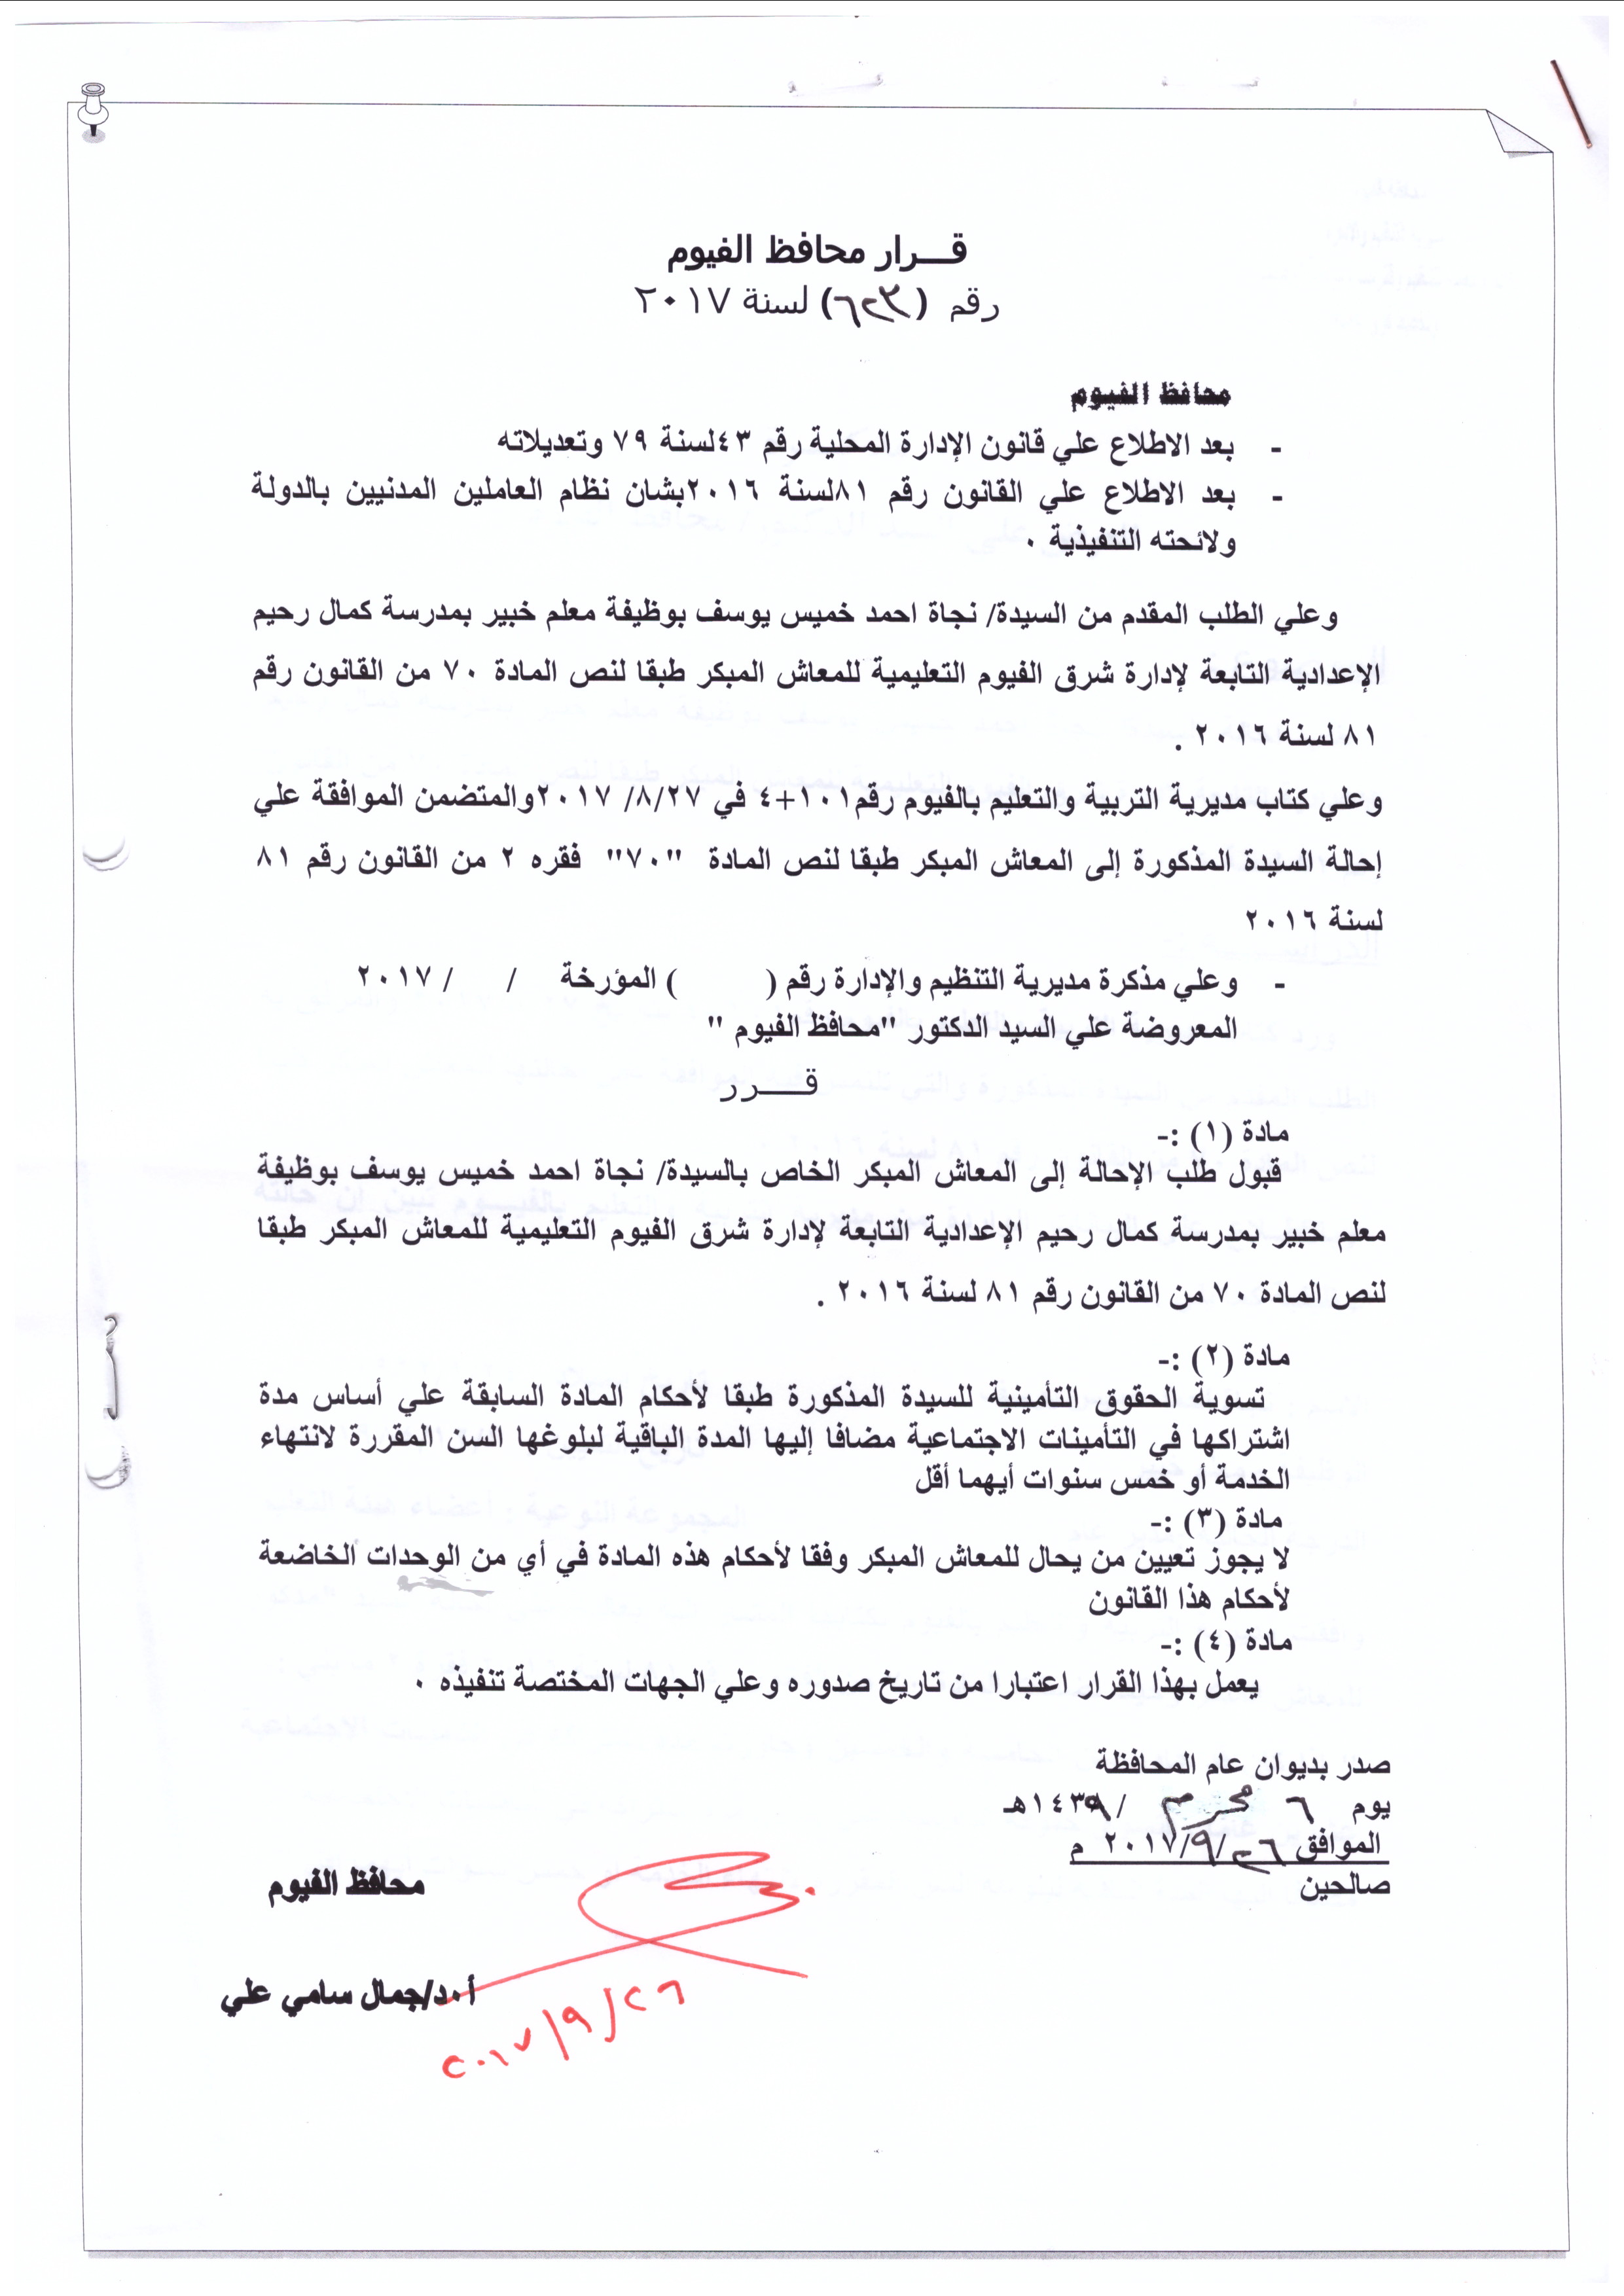 قـــرار محافظ الفيوم
رقم (٦٢٣) لسنة ٢٠١٧
محافظ الفيوم
- بعد الاطلاع علي قانون الإدارة المحلية رقم ٤٣لسنة ٧٩ وتعديلاته
- بعد الاطلاع علي القانون رقم ٨١لسنة ٢٠١٦بشان نظام العاملين المدنيين بالدولة
ولائحته التنفيذية ٠
وعلي الطلب المقدم من السيدة/ نجاة احمد خميس يوسف بوظيفة معلم خبير بمدرسة كمال رحيم
الإعدادية التابعة لإدارة شرق الفيوم التعليمية للمعاش المبكر طبقا لنص المادة ٧٠ من القانون رقم
٨١ لسنة ٢٠١٦ .
وعلي كتاب مديرية التربية والتعليم بالفيوم رقم١٠١+٤ في ٨/٢٧/ ٢٠١٧والمتضمن الموافقة علي
إحالة السيدة المذكورة إلى المعاش المبكر طبقا لنص المادة "٧٠" فقره ٢ من القانون رقم ٨١
لسنة ٢٠١٦
- وعلي مذكرة مديرية التنظيم والإدارة رقم ( ) المؤرخة / / ٢٠١٧
المعروضة علي السيد الدكتور "محافظ الفيوم "
قـــرر
مادة (١) :-
قبول طلب الإحالة إلى المعاش المبكر الخاص بالسيدة/ نجاة احمد خميس يوسف بوظيفة
معلم خبير بمدرسة كمال رحيم الإعدادية التابعة لإدارة شرق الفيوم التعليمية للمعاش المبكر طبقا
لنص المادة ٧٠ من القانون رقم ٨١ لسنة ٢٠١٦ .
مادة (٢) :-
تسوية الحقوق التأمينية للسيدة المذكورة طبقا لأحكام المادة السابقة علي أساس مدة
اشتراكها في التأمينات الاجتماعية مضافا إليها المدة الباقية لبلوغها السن المقررة لانتهاء
الخدمة أو خمس سنوات أيهما أقل
مادة (٣) :-
لا يجوز تعيين من يحال للمعاش المبكر وفقا لأحكام هذه المادة في أي من الوحدات الخاضعة
لأحكام هذا القانون
مادة (٤) :-
يعمل بهذا القرار اعتبارا من تاريخ صدوره وعلي الجهات المختصة تنفيذه ٠
صدر بديوان عام المحافظة
يوم ٦ محرم /١٤٣٩هـ
الموافق ٢٦/٩/٢٠١٧ م
صالحين
محافظ الفيوم
أ٠د/جمال سامي علي
٢٦/٩/٢٠١٧